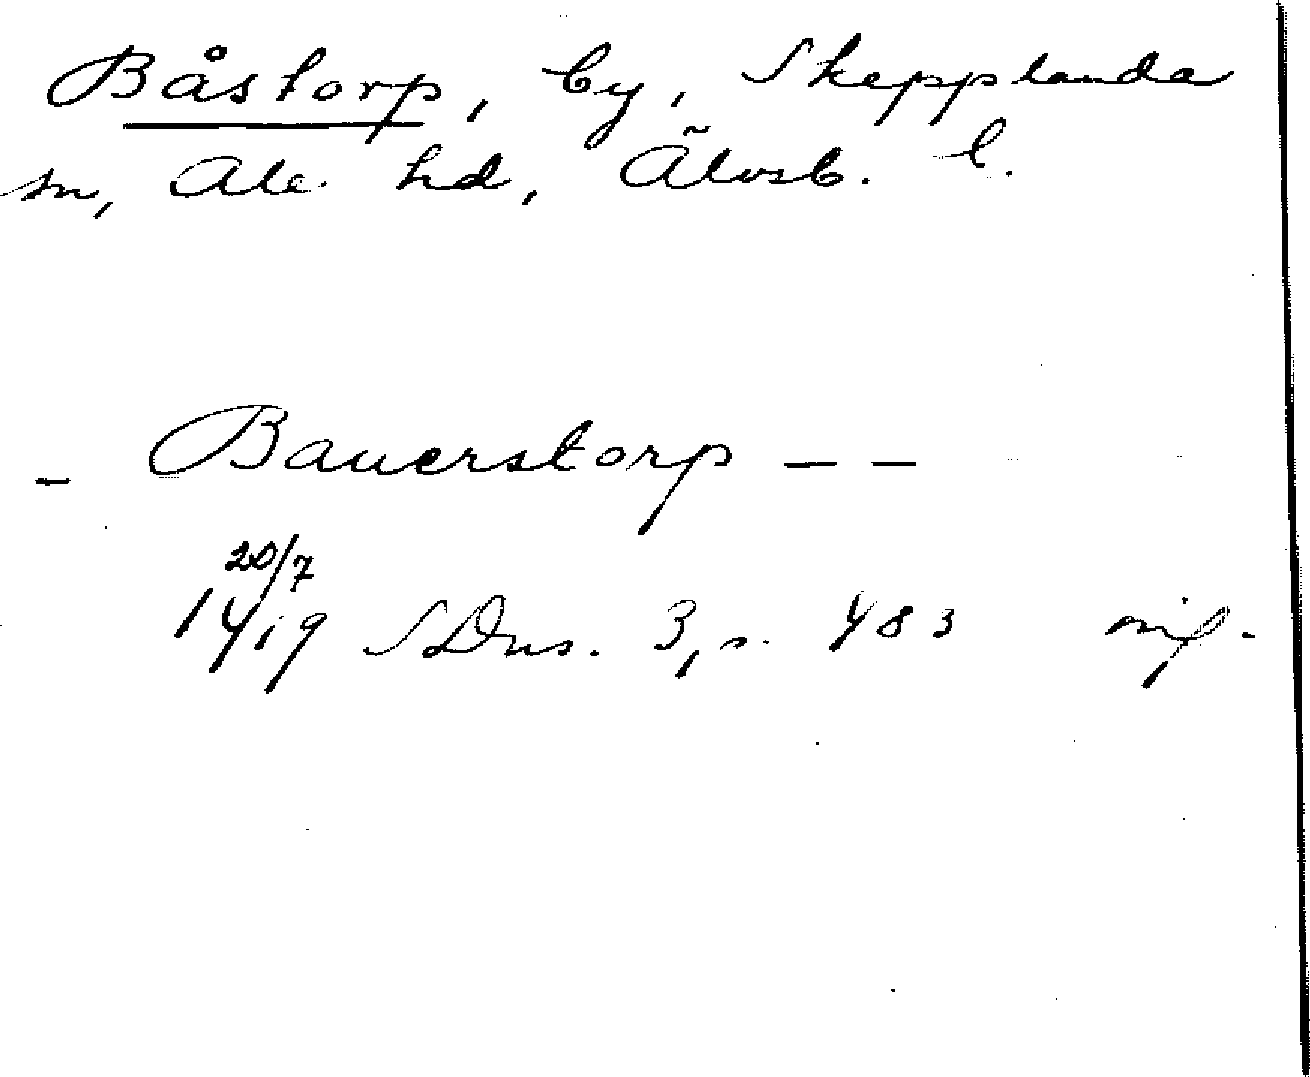 Båstorp, by, Skepplanda
sn, Ale hd, Älvsb. l.
– Bauerstorp – –
20/7
1419 SDns. 3, s. 483 mf.